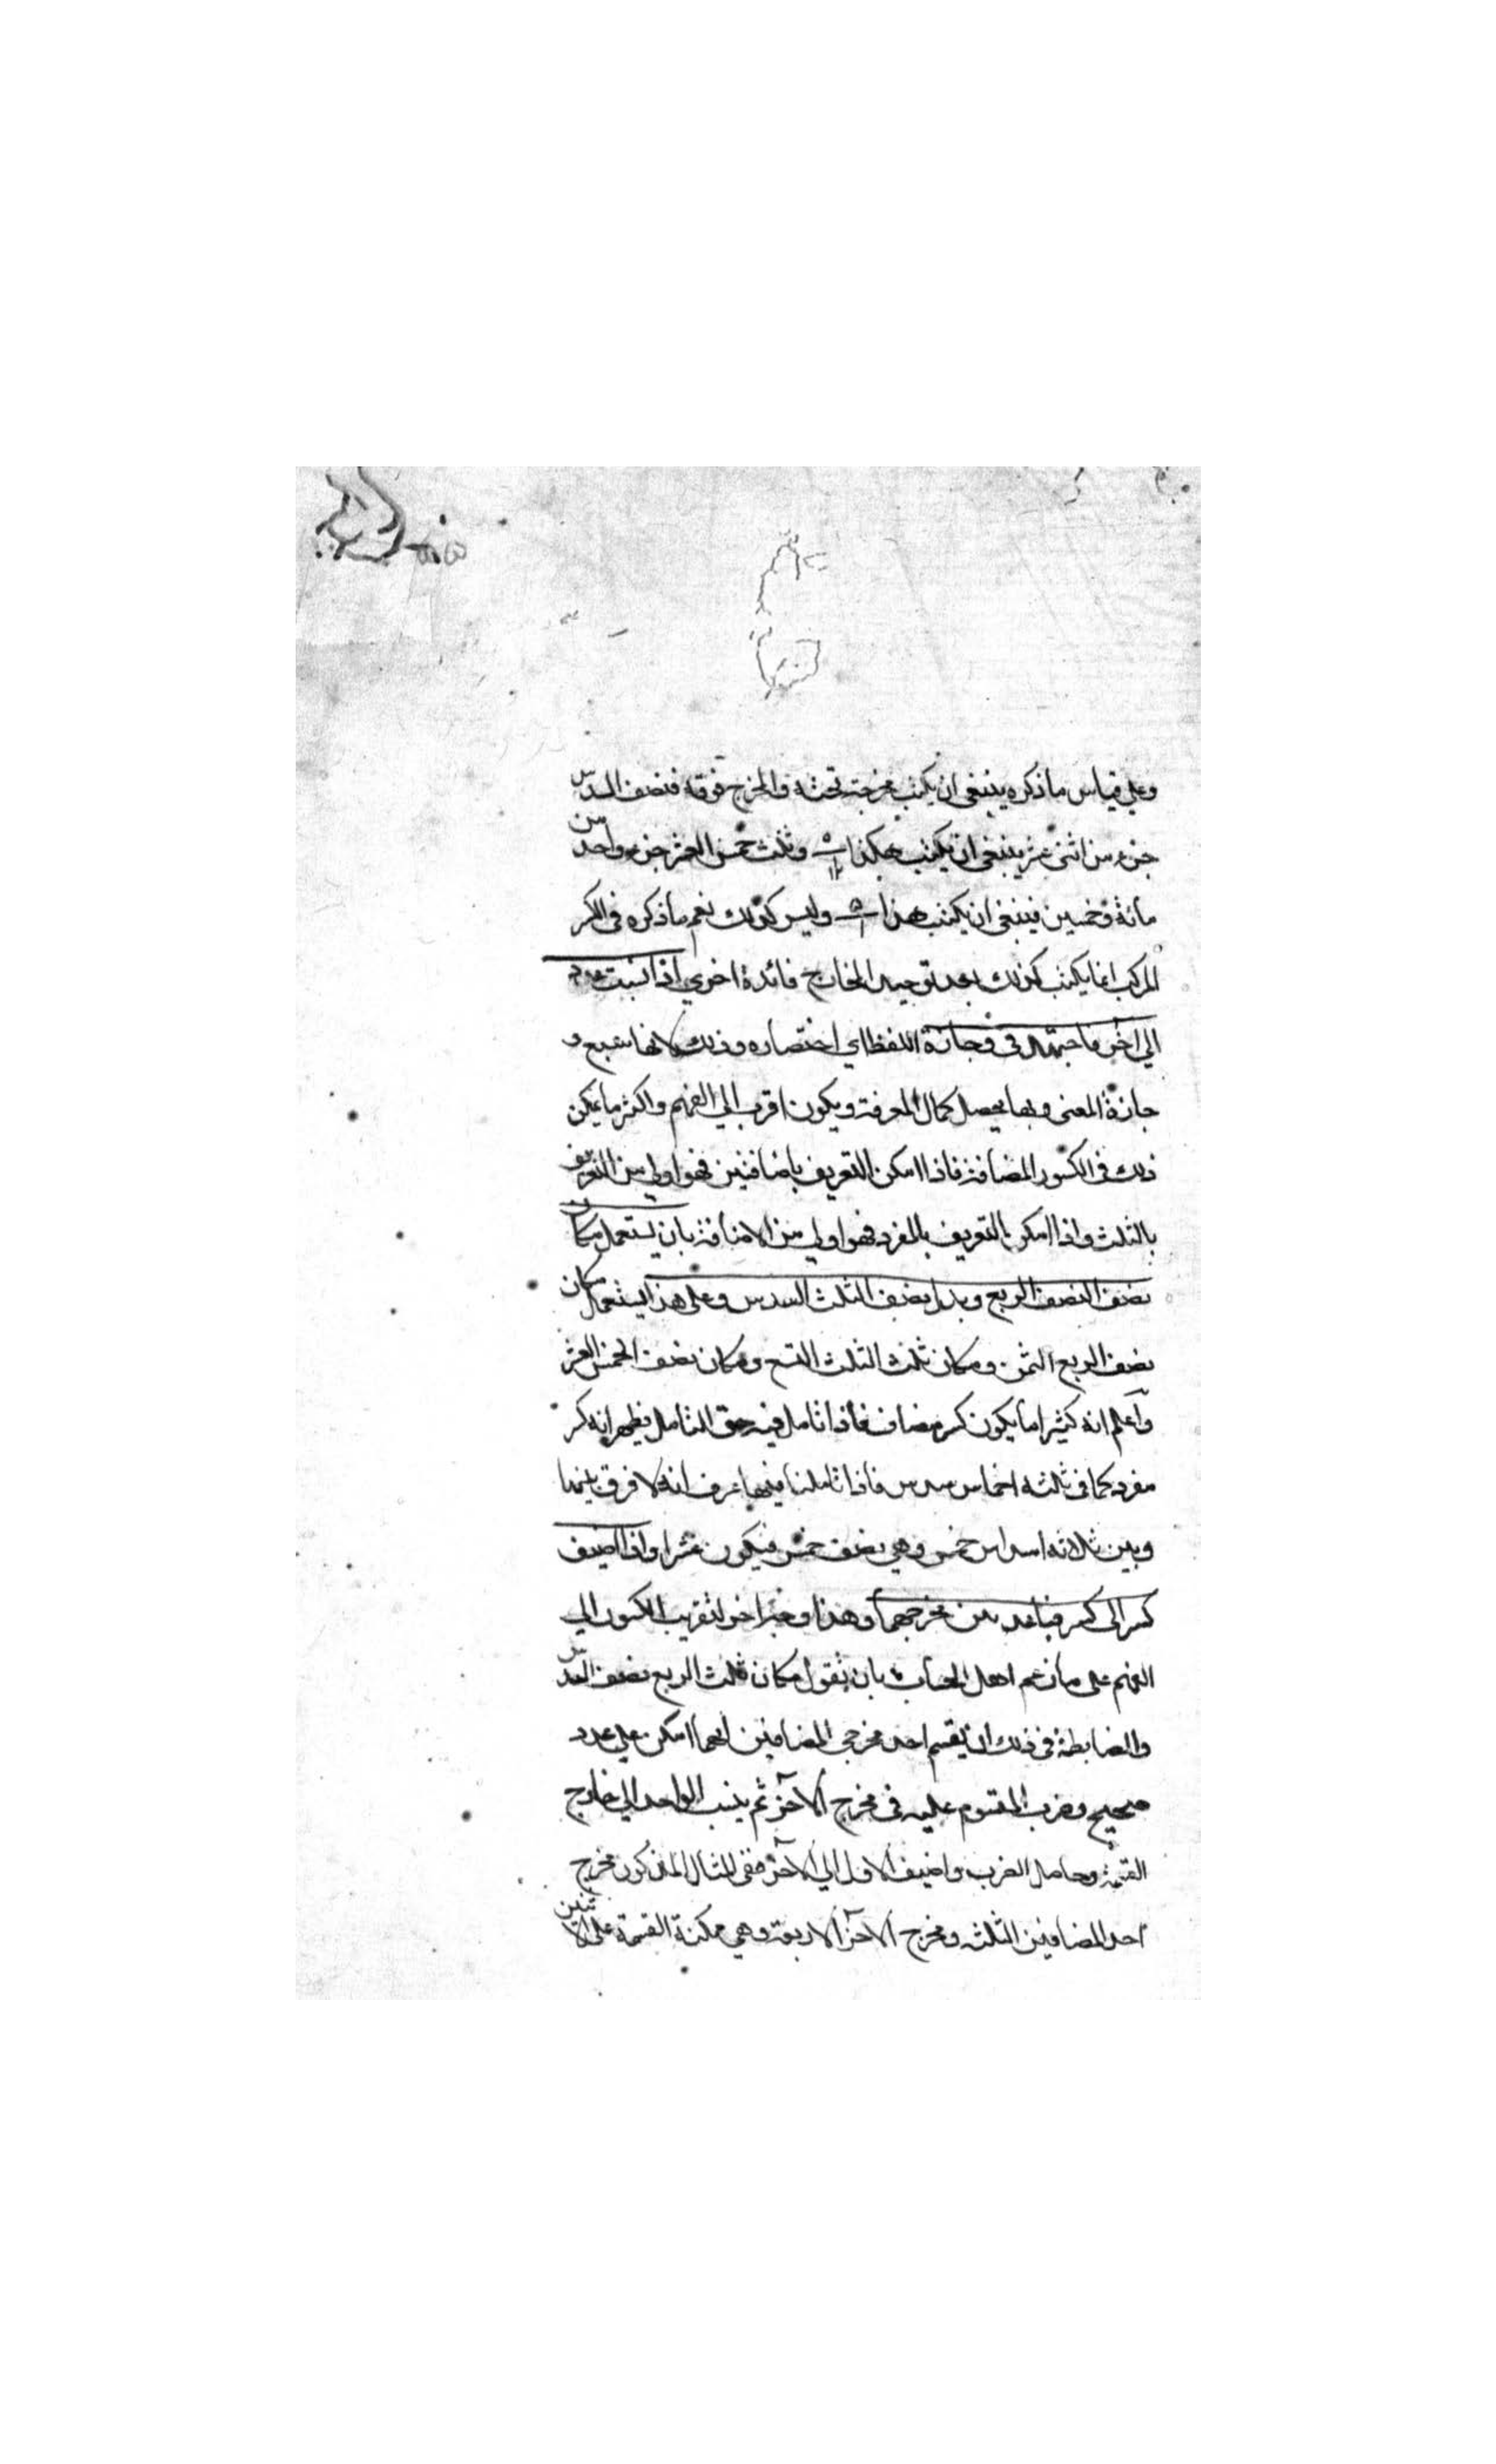 وعلي قياس ما ذكره ينبغي ان يكتب مخرجته تحته والمخرج فوقه فنصف السدس
جزء من اثنى عشر ينبغي ان يكتب هكذا وثلث خمس العشر جزء واحد من
مائة وخمسين فينبغي ان يكتب هذا وليس كذلك نعم ما ذكره فى الكسر
المركب انما يكتب كذلك بعد توحيد المخارج فائدة اخرى اذا نسبت عدد
الي اخر فاجتهد فى وجازة اللفظ اي اختصاره وذلك لانها تتبع و
جازة المعنى وبها يحصل كمال المعرفة ويكون اقرب الي الفهم واكثر ما يمكن
ذلك فى الكسور المضافة فاذا امكن التعريف باضافتين فهو اولي من التعريف
بالثلث واذا امكن التعريف بالمفرد فهو اولي من الاضافة بان يستعمل مكان
نصف النصف الربع وبدل نصف الثلث السدس وعلى هذا يستعمل مكان
نصف الربع الثمن ومكان ثلث الثلث التسع ومكان نصف الخمس العشر
واعلم انه كثيرا ما يكون كسر مضاف فاذا تامل فيه حق التامل يظهر انه كسر
مفرد كما فى ثلثه اخماس سدس فاذا تاملنا فيها عرف انه لا فرق بينها
وبين ثلاثه اسداس خمس وهي نصف خمس فيكون عشرا واذا اضيف
كسر الى كسر فباعد بين مخرجيهما وهذا وجه اخر لتقريب الكسور الي
الفهم على ما زعم اهل الحساب بان يقول مكان ثلث الربع نصف السدس
والضابطة فى ذلك ان يقسم احد مخرجي المضافين ايهما امكن علي عدد
صحيح وضرب المقسوم عليه فى مخرج الآخر ثم ينسب الواحد الي خارج
القسمة وحاصل الضرب واضيف الاول الي الآخر ففى المثال المذكور مخرج
احد المضافين الثلثه ومخرج الآخر الاربعة وهي ممكنة القسمة على الاثنين